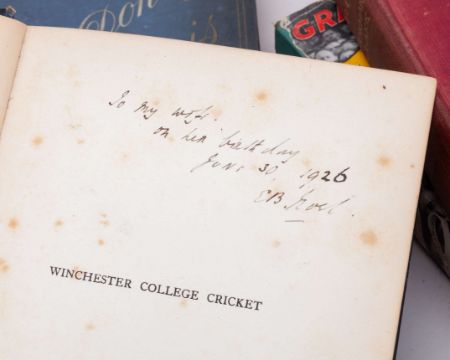 Don
is
GRA
To my wife.
on her birthday
June 30. 1926
EB Noel.
WINCHESTER COLLEGE CRICKET